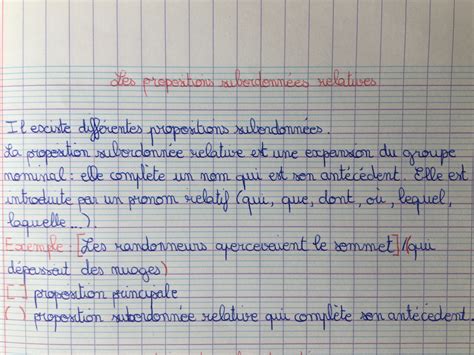 Les propositions subordonnées relatives
Il existe différentes propositions subordonnées.
La proposition subordonnée relative est une expansion du groupe
nominal : elle complète un nom qui est son antécédent. Elle est
introduite par un pronom relatif (qui, que, dont, où, lequel,
laquelle...).
Exemple : [Les randonneurs apercevaient le sommet] / (qui
dépassait des nuages)
[ ] proposition principale
( ) proposition subordonnée relative qui complète son antécédent.